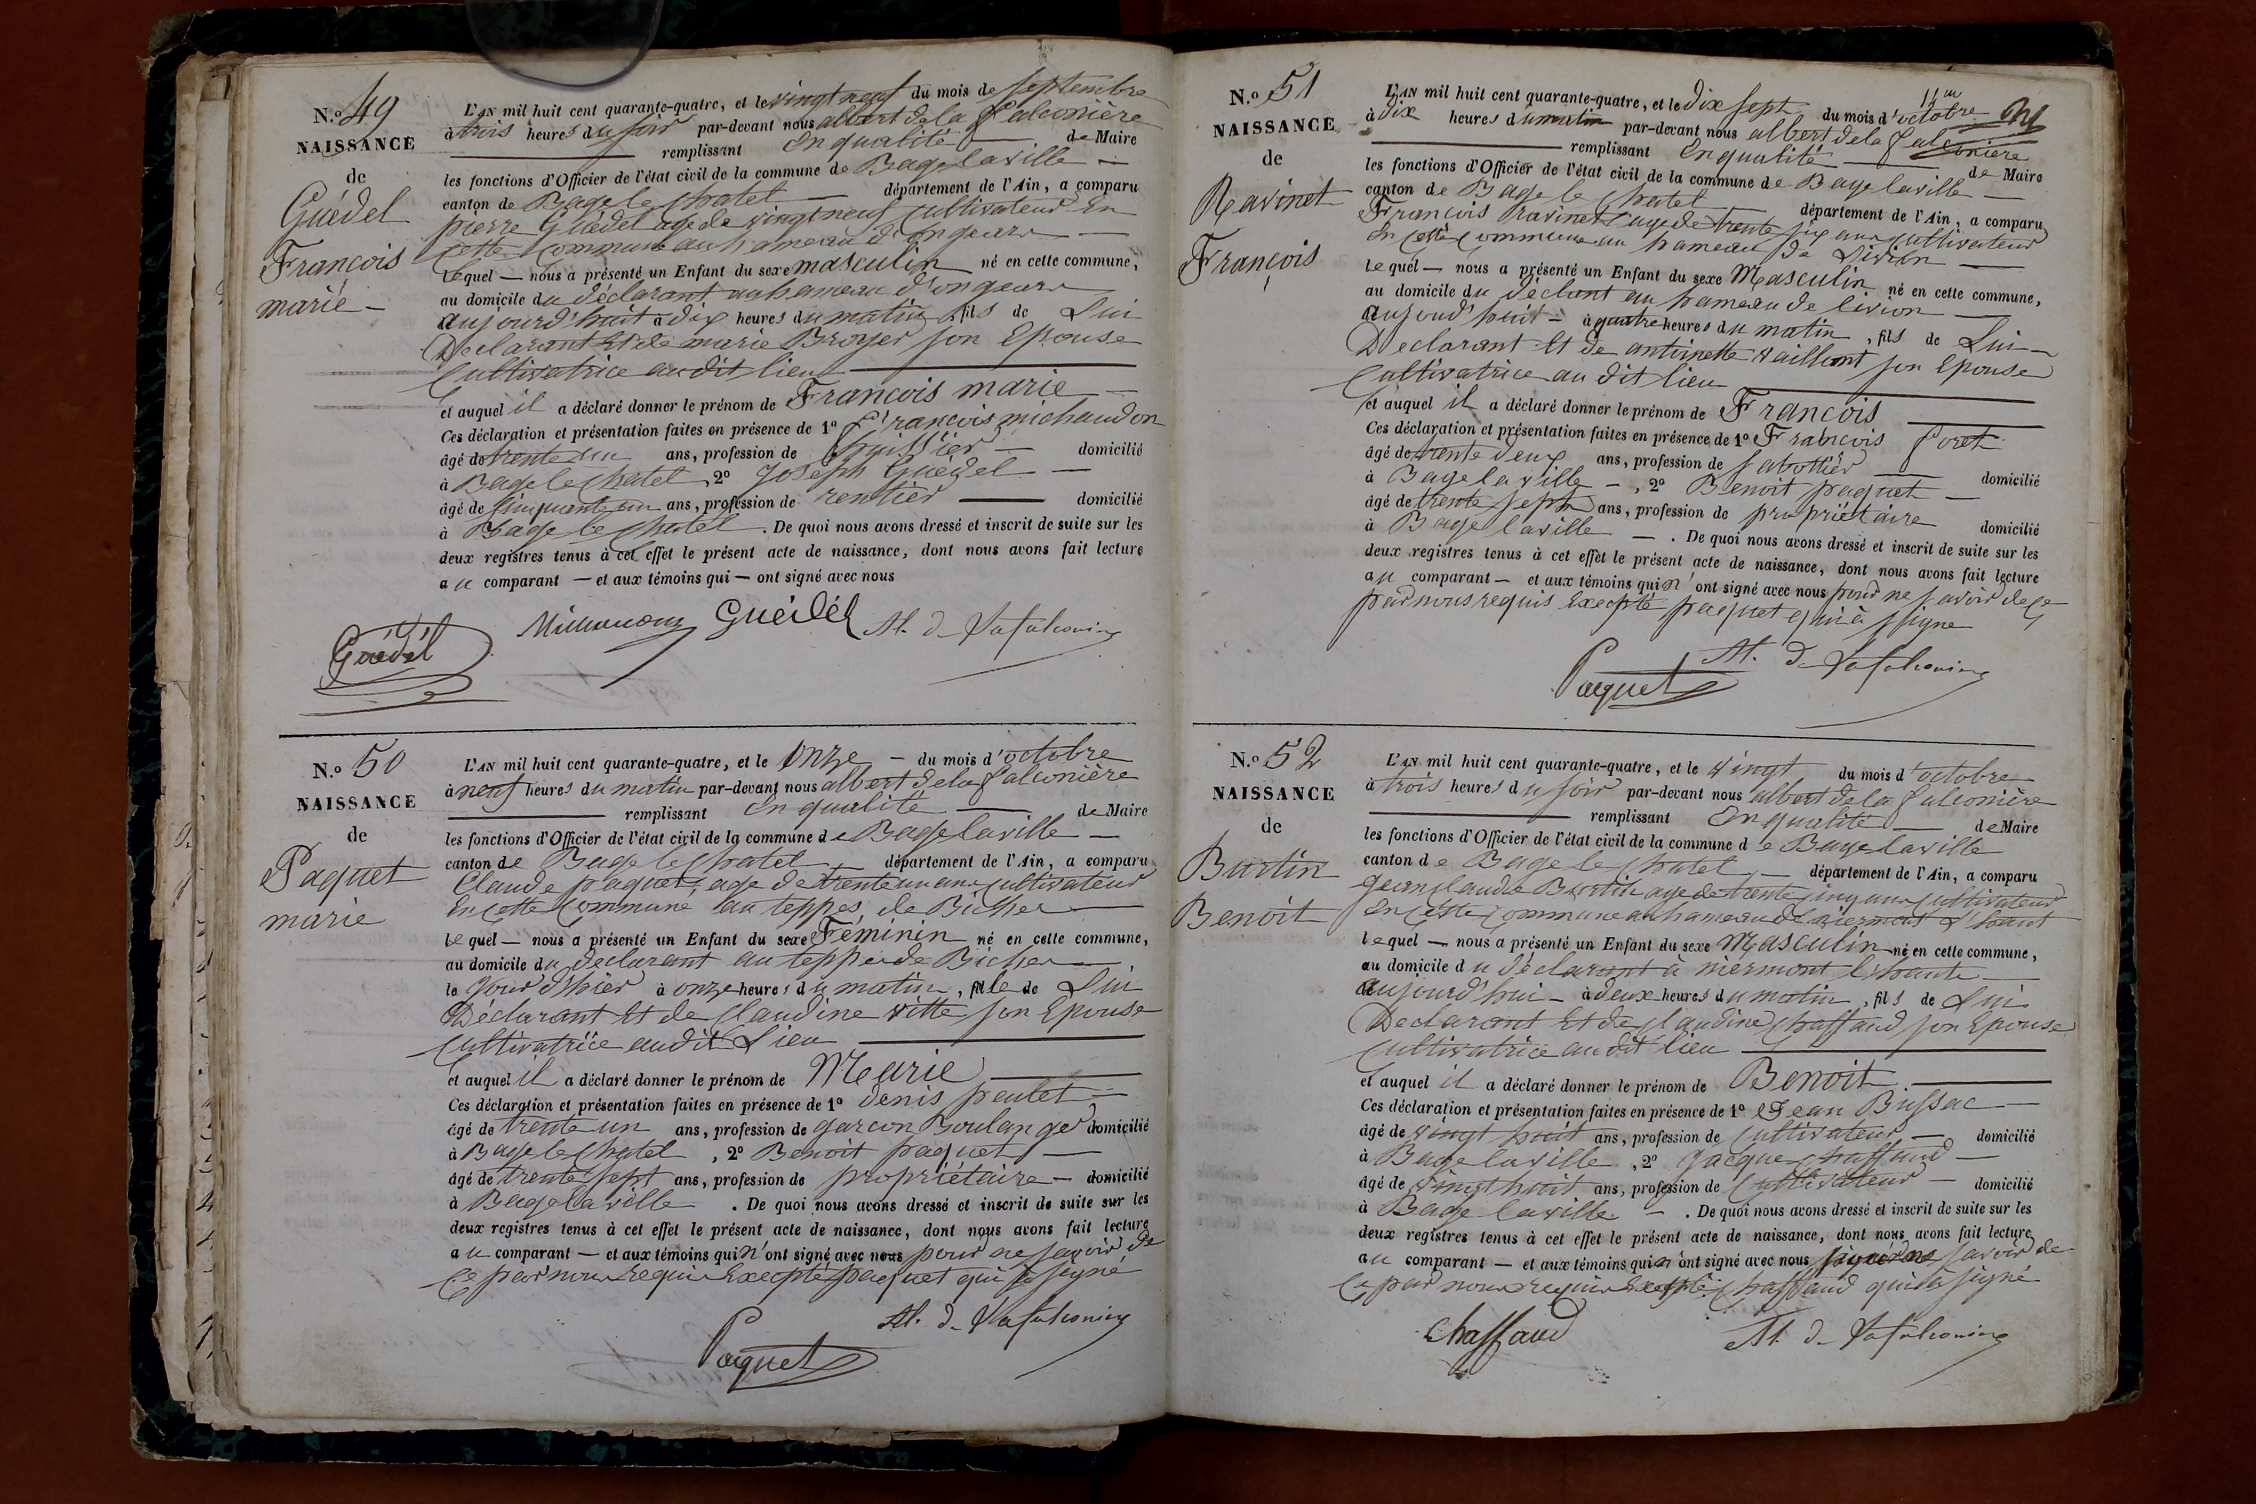 N.o 49
NAISSANCE
de
Guédel
François
marie
L'AN mil huit cent quarante-quatre, et le vingt neuf du mois de septembre
à trois heures du soir par-devant nous albert de la falconière
remplissant En qualité de Maire
les fonctions d'Officier de l'état civil de la commune de Bage la ville
canton de Bage le chatel département de l'Ain, a comparu
pierre Guédel age de vingt neuf cultivateur En
cette Commune au hameau d'ongeurs
Lequel nous a présenté un Enfant du sexe masculin né en cette commune,
au domicile du déclarant au hameau d'ongeurs
aujourd'huit à dix heures du matin fils de Lui
Declarant Et de marie Broyer son Epouse
Cultivatrice au dit lieu
et auquel il a déclaré donner le prénom de François marie
Ces déclaration et présentation faites en présence de 1º François michaudon
âgé de trente un ans, profession de huissier domicilié
à Bage le chatel, 2º Joseph Guédel
âgé de Cinquante un ans, profession de rentier domicilié
à Bage le chatel. De quoi nous avons dressé et inscrit de suite sur les
deux registres tenus à cet effet le présent acte de naissance, dont nous avons fait lecture
au comparant et aux témoins qui ont signé avec nous
Guédel Michaudon Guédel Al. de Lafalconière
N.o 50
NAISSANCE
de
Paquet
marie
L'AN mil huit cent quarante-quatre, et le onze du mois d'octobre
à neuf heures du matin par-devant nous albert de la falconière
remplissant En qualité de Maire
les fonctions d'Officier de l'état civil de la commune de Bage la ville
canton de Bage le chatel département de l'Ain, a comparu
Claude paquet, age de trente un ans cultivateur
En cette Commune au teppes de Bicher
Lequel nous a présenté un Enfant du sexe Féminin né en cette commune,
au domicile du declarant au teppes de Bicher
le jour d'hier à onze heures du matin, fille de Lui
Déclarant Et de Claudine vitte son Epouse
Cultivatrice au dit Lieu
et auquel il a déclaré donner le prénom de Marie
Ces déclaration et présentation faites en présence de 1º denis peulet
âgé de trente un ans, profession de garcon Boulanger domicilié
à Bage le chatel, 2º Benoit paquet
âgé de trente sept ans, profession de propriétaire domicilié
à Bage la ville. De quoi nous avons dressé et inscrit de suite sur les
deux registres tenus à cet effet le présent acte de naissance, dont nous avons fait lecture
au comparant et aux témoins qui n'ont signé avec nous pour ne savoir de
Ce par nous requis Excepté paquet qui a signé
Paquet Al. de Lafalconière
N.o 51
NAISSANCE
de
Ravinet
François
L'AN mil huit cent quarante-quatre, et le dix sept du mois d'octobre
à dix heures du matin par-devant nous albert de la falconière
remplissant En qualité de Maire
les fonctions d'Officier de l'état civil de la commune de Bage la ville
canton de Bage le chatel département de l'Ain, a comparu
François Ravinet age de trente six ans cultivateur
En cette Commune au hameau de Livion
Lequel nous a présenté un Enfant du sexe Masculin né en cette commune,
au domicile du déclant au hameau de livion
aujourd'huit à quatre heures du matin, fils de Lui
Declarant Et de antoinette vaillant son Epouse
Cultivatrice au dit lieu
et auquel il a déclaré donner le prénom de François
Ces déclaration et présentation faites en présence de 1º François foret
âgé de trente deux ans, profession de sabottier domicilié
à Bage la ville, 2º Benoit paquet
âgé de trente sept ans, profession de propriétaire domicilié
à Bage laville. De quoi nous avons dressé et inscrit de suite sur les
deux registres tenus à cet effet le présent acte de naissance, dont nous avons fait lecture
au comparant et aux témoins qui n'ont signé avec nous pour ne savoir de ce
par nous requis Excepté paquet qui à signe
Paquet Al. de Lafalconière
N.o 52
NAISSANCE
de
Burtin
Benoit
L'AN mil huit cent quarante-quatre, et le vingt du mois d'octobre
à trois heures du soir par-devant nous albert de la falconière
remplissant En qualité de Maire
les fonctions d'Officier de l'état civil de la commune de Bage la ville
canton de Bage le chatel département de l'Ain, a comparu
jean claude Burtin age de trente cinq ans cultivateur
En cette Commune au hameau de niermont L'haut
Lequel nous a présenté un Enfant du sexe Masculin né en cette commune,
au domicile du déclarant à niermont L'haute
aujourd'hui à deux heures du matin, fils de Lui
Declarant Et de claudine chaffaud son Epouse
Cultivatrice au dit lieu
et auquel il a déclaré donner le prénom de Benoit
Ces déclaration et présentation faites en présence de 1º Jean Bussac
âgé de vingt huit ans, profession de Cultivateur domicilié
à Bage la ville, 2º Jacque chaffaud
âgé de vingt huit ans, profession de Cultivateur domicilié
à Bage la ville. De quoi nous avons dressé et inscrit de suite sur les
deux registres tenus à cet effet le présent acte de naissance, dont nous avons fait lecture
au comparant et aux témoins qui n'ont signé avec nous savoir de
Ce par nous requis Excepté chaffaud qui a signé
Chaffaud Al. de Lafalconière